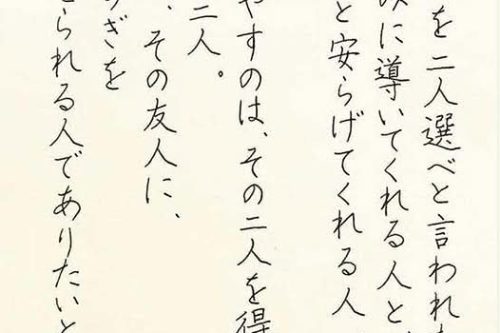 を二人選べと言われ
に導いてくれる人と
と安らげてくれる人
やすのは、その二人を得
二人。
、その友人に、
ぎを
られる人でありたいと